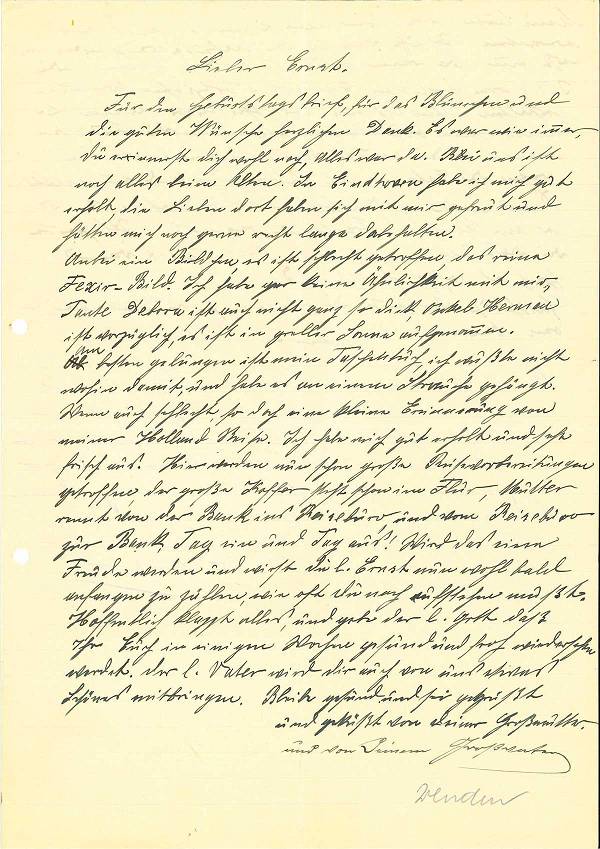 Lieber Ernst.
Für den Geburtstagsbrief, für das Blümchen und
die guten Wünsche herzlichen Dank. Es war wie immer,
du erinnerst dich wohl noch, alles war da. Bei uns ist
noch alles beim Alten. In Eindhoven habe ich mich gut
erholt, die Lieben dort haben sich mit mir gefreut und
hätten mich noch gerne recht lange dabehalten.
Anbei ein Bildchen es ist schlecht getroffen das reine
Fexir-Bild. Ich habe gar keine Ähnlichkeit mit mir,
Tante Debora ist auch nicht ganz so dick, Onkel Herman
ist vorzüglich, es ist in greller Sonne aufgenommen.
Am besten gelungen ist mein Taschentuch, ich wußte nicht
wohin damit, und habe es an einem Strauche gehängt.
Wenn auch schlecht, so doch eine kleine Erinnerung von
meiner Holland Reise. Ich habe mich gut erholt und sehe
frisch aus. Hier werden nun schon große Reisevorbereitungen
getroffen, der große Koffer steht schon im Flur, Mutter
rennt von der Bank ins Reisebüro, und vom Reisebüro
zur Bank, Tag ein und Tag aus! Wird das eine
Freude werden und wirst du l. Ernst nun wohl bald
anfangen zu zählen, wie oft du noch aufstehen mußt.
Hoffentlich klappt alles, und gebe der l. Gott daß
Ihr Euch in einigen Wochen gesund und froh wiedersehen
werdet. Der l. Vater wird dir auch von uns etwas
Schönes mitbringen. Bleibe gesund und sei gegrüßt
und geküßt von deiner Großmutter.
und von Deinem Großvater